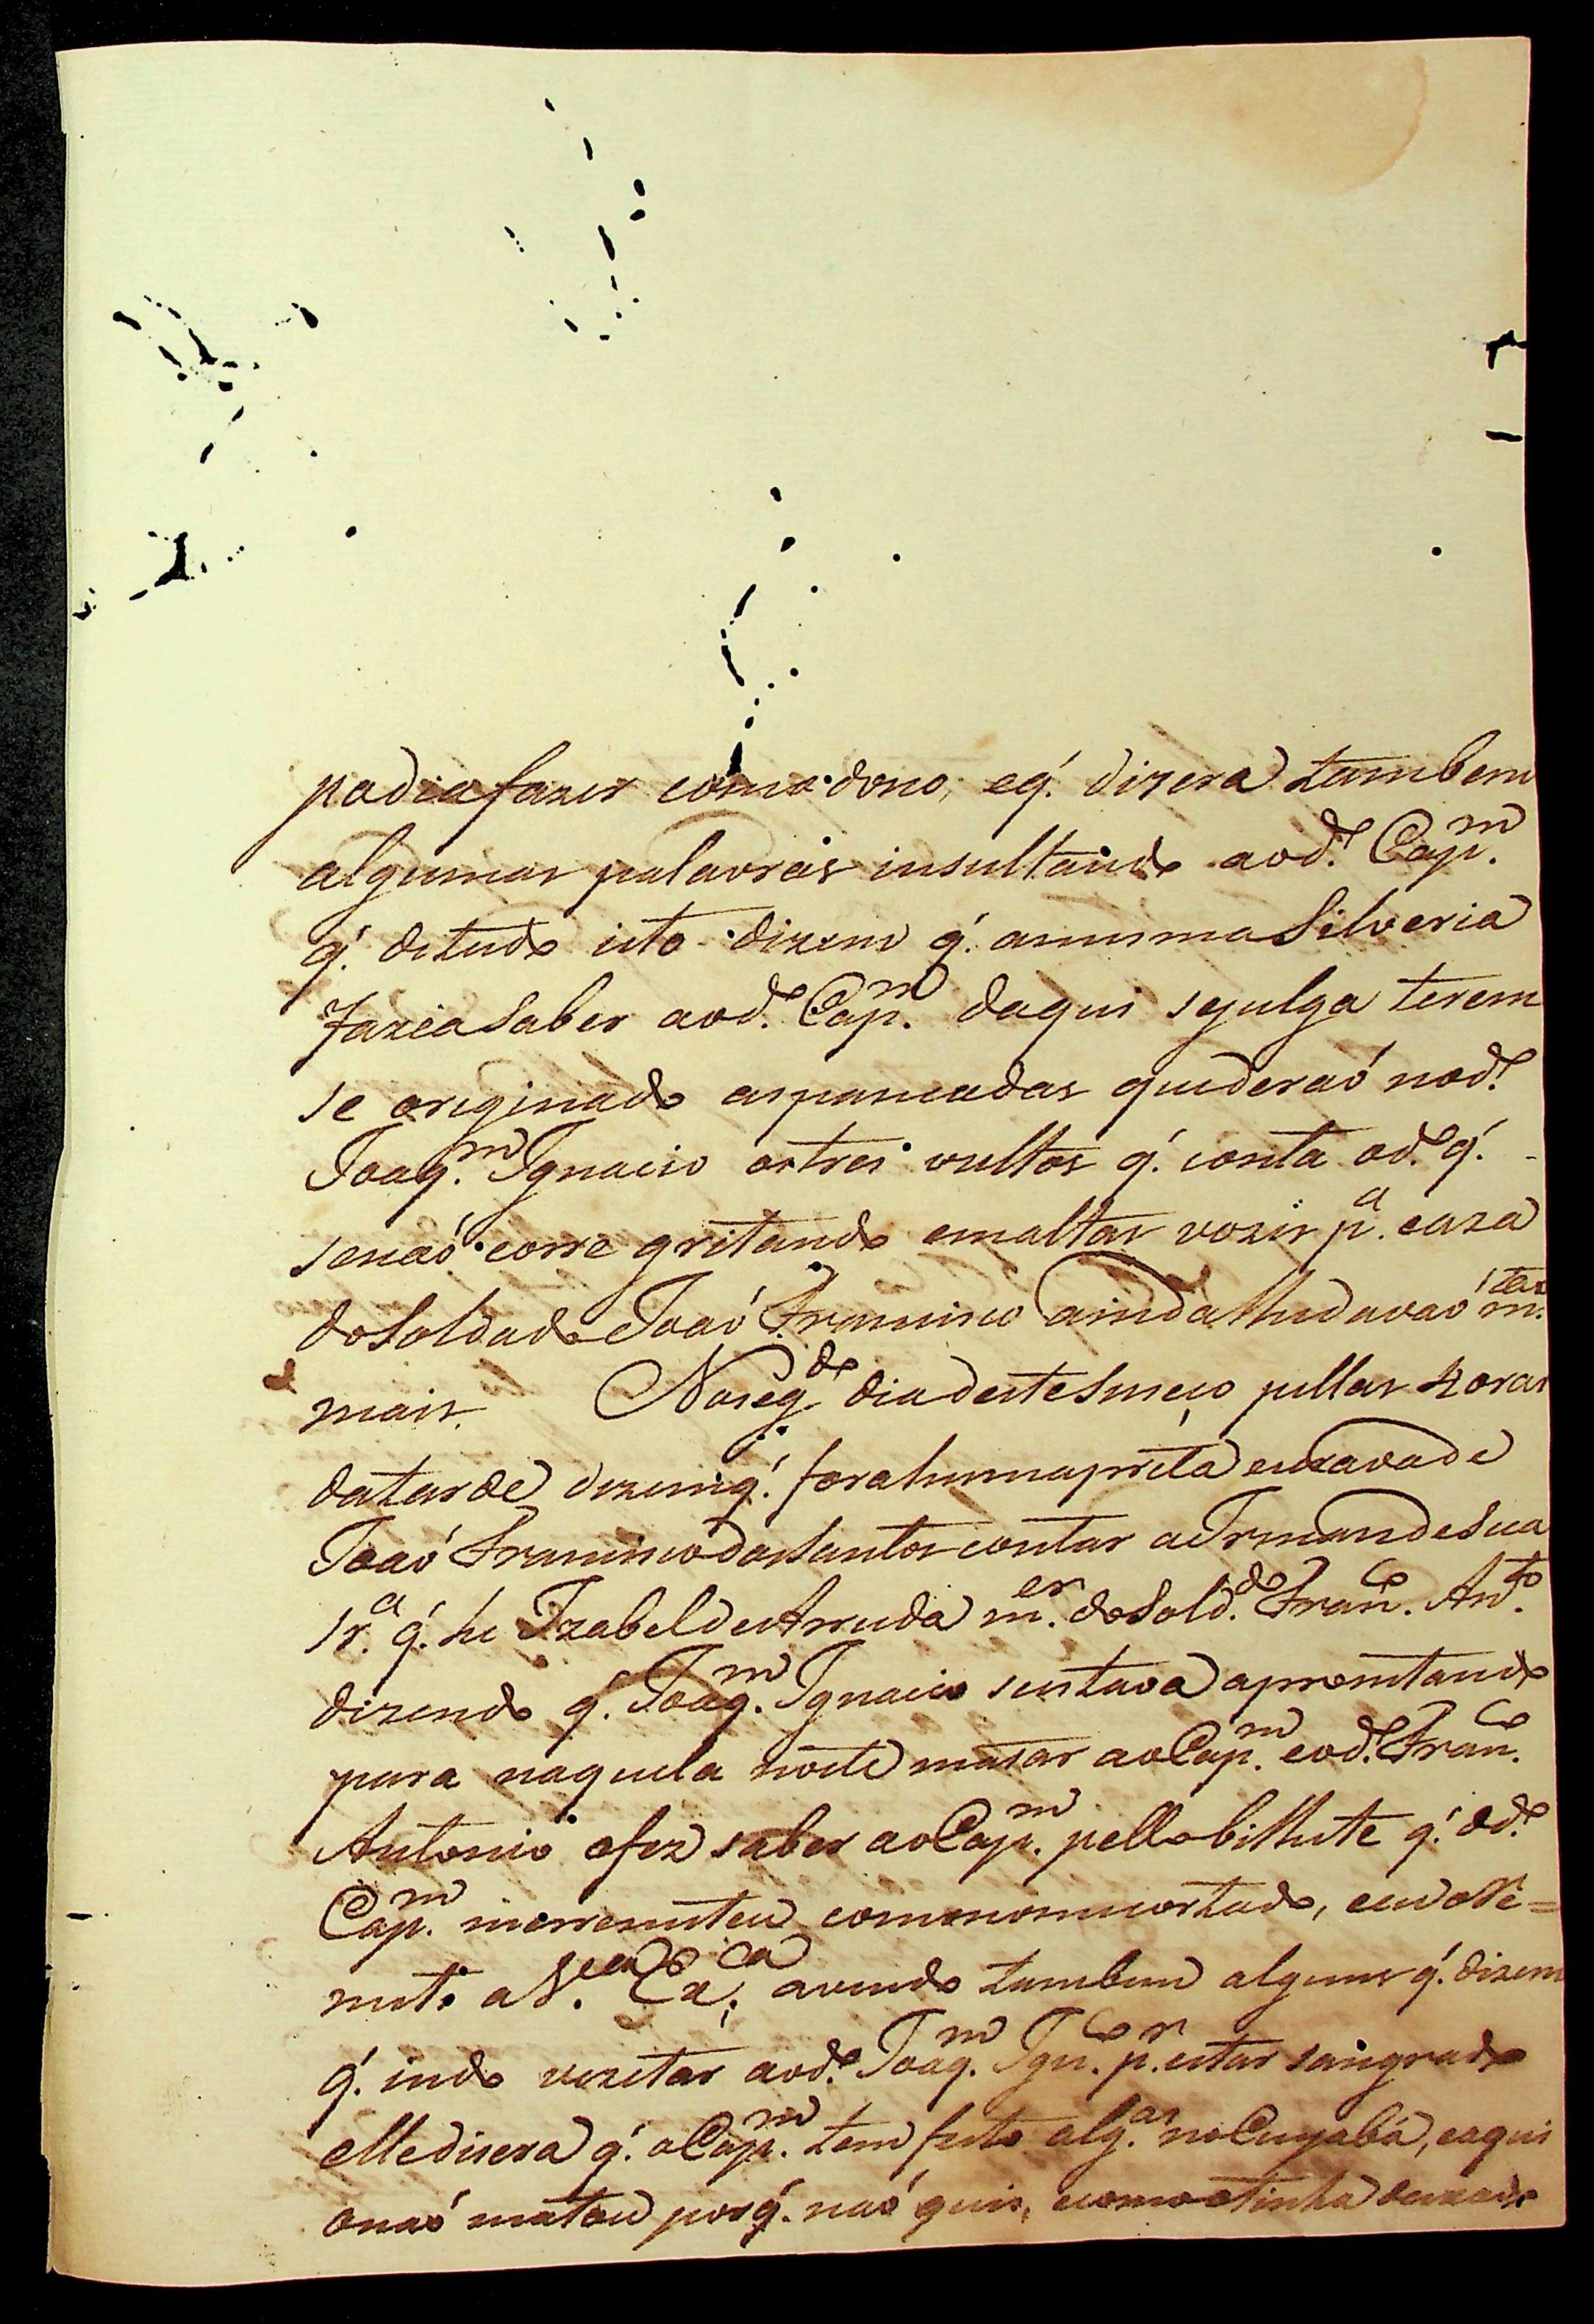 podia fazer como dono, eq̃. dizera tambem
algumas palavras insultando aod.º Cap.m
q̃. detudo isto dizem q̃. amesma Silveria
fazia saber aod.º Cap.m daqui sejulga terem
se originado aspancadas quederaó nod.º
Joaq.m Ignacio ostres vultos q̃. conta od.º q̃.
senaó corre gritando emaltas vozes p.a caza
doSoldado Joaó Francisco ainda lhedavaó m.tas
mais. Noseg.do dia deste suceço pellas 4 oras
datarde dizemq̃. fora humapreta escravade
Joaó Francisco dosSantos contar aIrmandesua
Sr.a q̃. he Izabel deArruda m.er doSold.do Fran.co Ant.o
dizendo q̃. Joaq.m Ignacio sestava aprontando
para naquela noite matar aoCap.m eod.º Fran.co
Antonio ofez saber aoCap.m pello bilhete q̃. od.º
Cap.m meremeteu comonomecortado, eeuore=
meto aV. Ex.ca; avendo tambem alguns q̃. dizem
q̃. indo vizitar aod.º Joaq.m Ign.co p.r estar sangrado
elledisera q̃. oCap.m tem feito alg.as noCuyabá, eaqui
onaó matou porq̃. naó quis, ecomootinha deixado